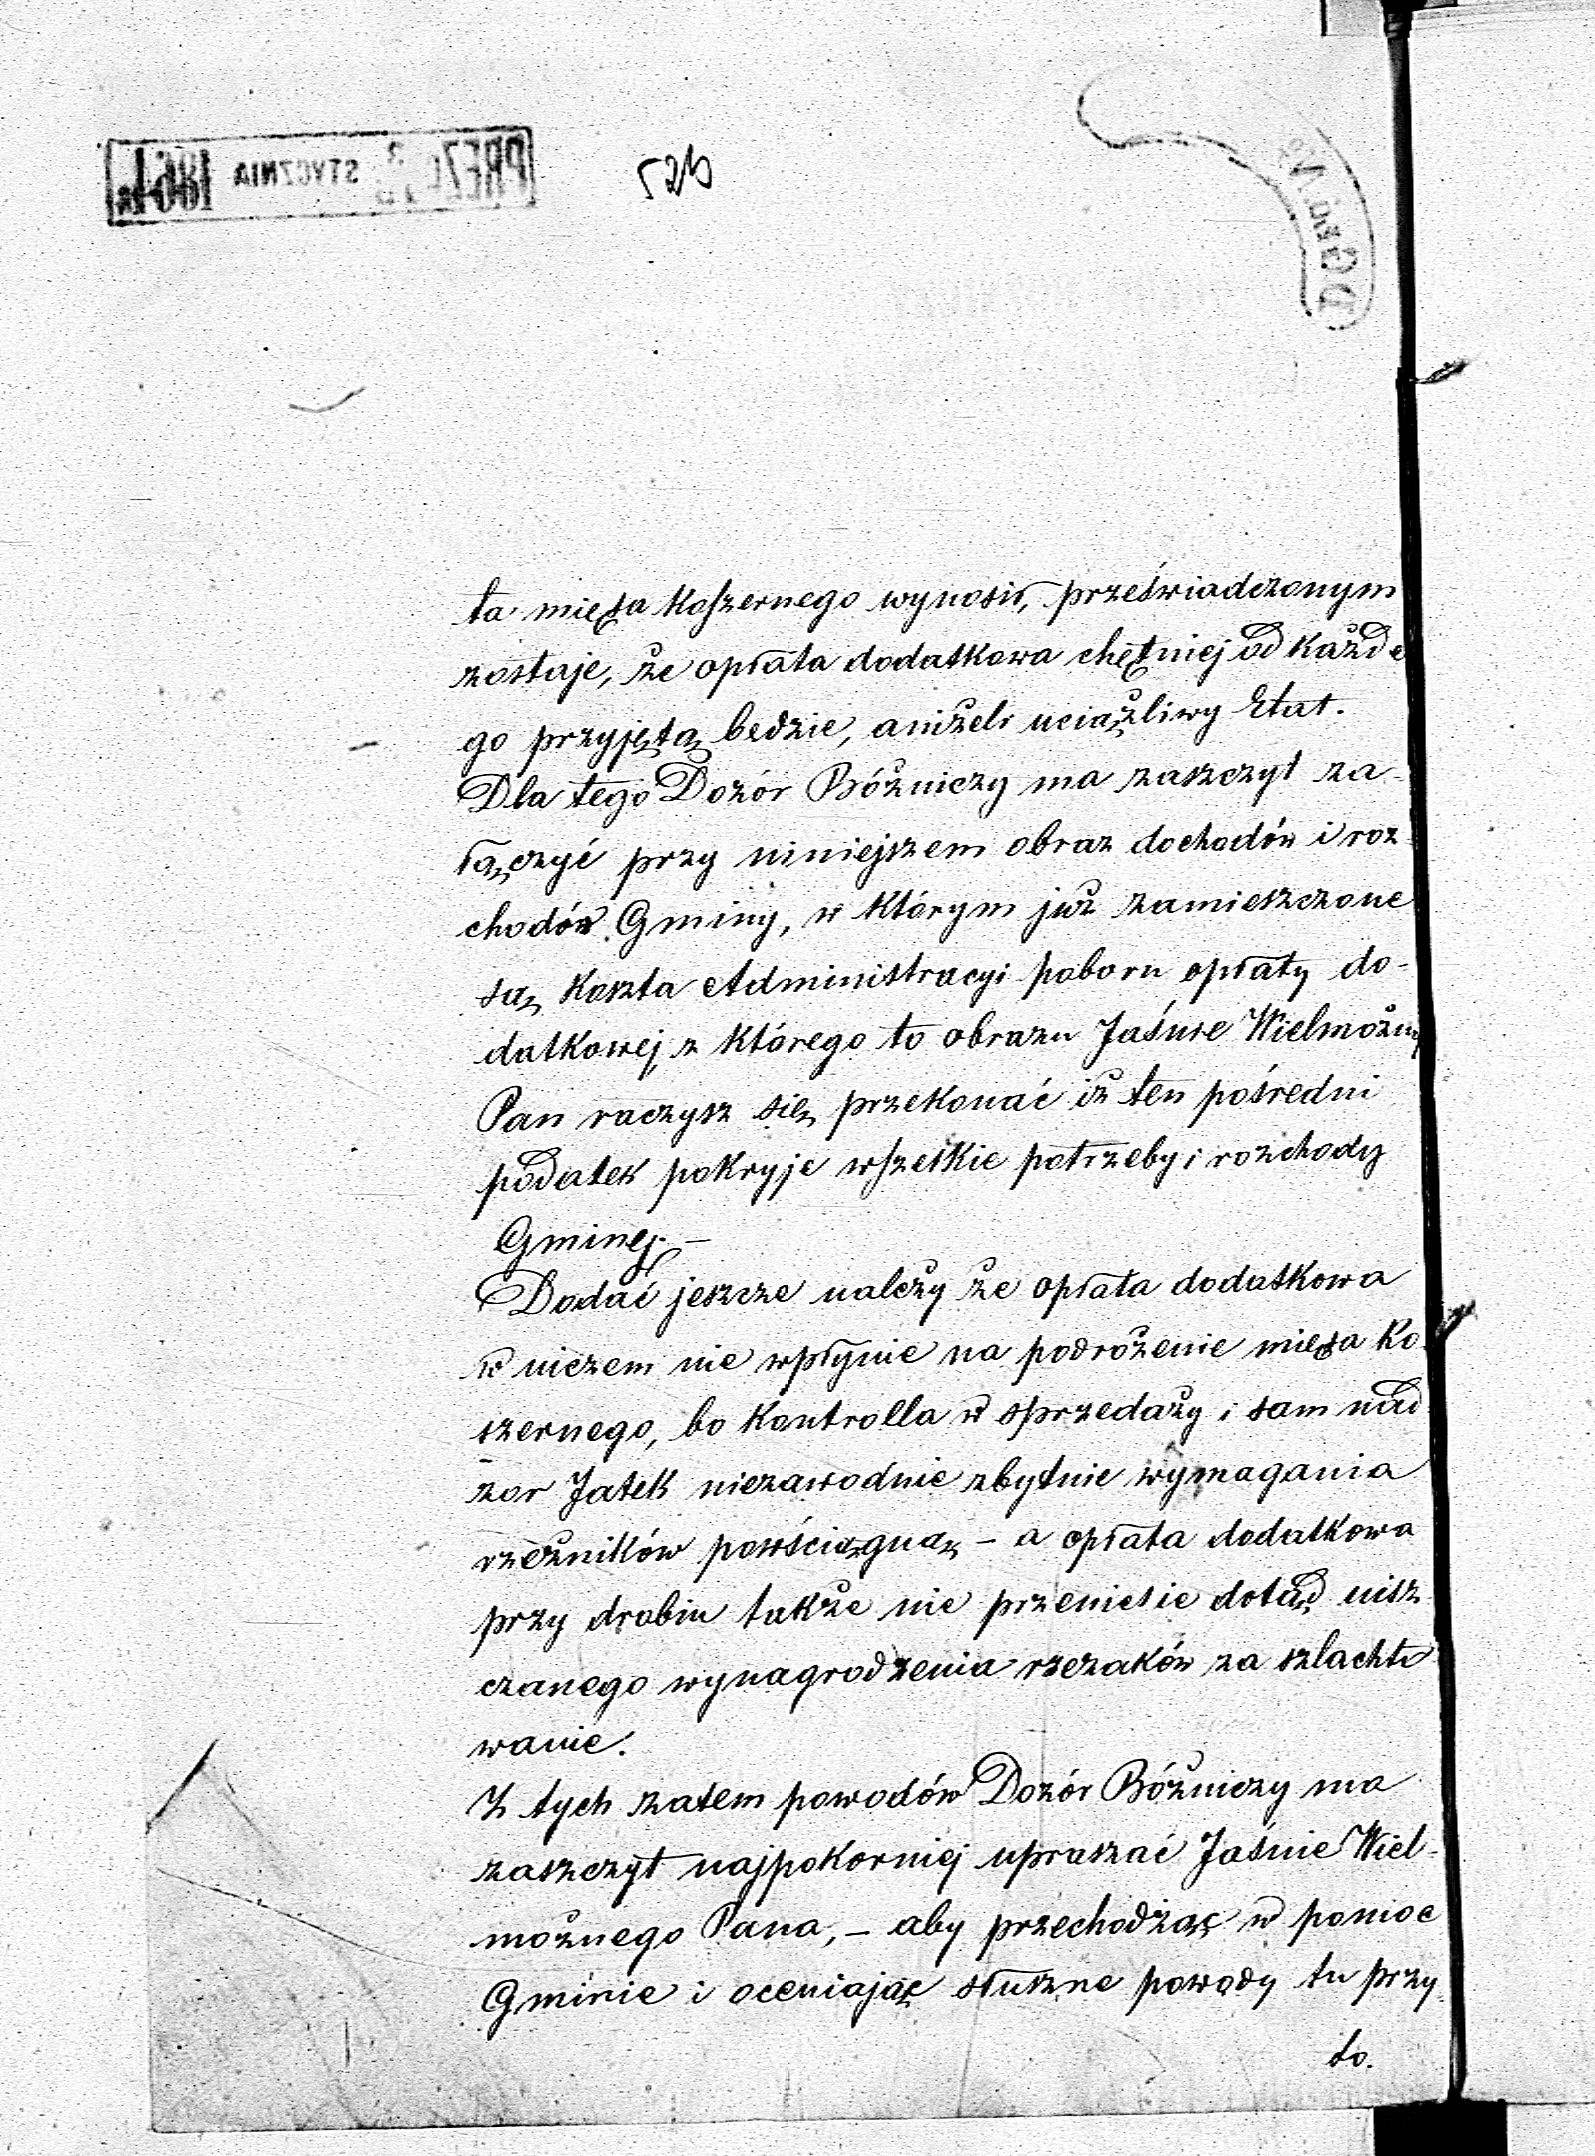 526
ta mięsa koszernego wynosił, przeświadczonym
zostaje, że opłata dodatkowa chętniej od każde
go przyjętą będzie, aniżeli uciążliwy Etat.
Dla tego Dozór Bóżniczy ma zaszczyt za-
łączyć przy niniejszem obraz dochodów i roz-
chodów Gminy, w którym już zamieszczone
są koszta Administracyi poboru opłaty do-
datkowej z którego to obrazu Jaśnie Wielmożny
Pan raczysz się przekonać iż ten pośredni
podatek pokryje wszelkie potrzeby i rozchody
Gminej.-
Dodać jeszcze należy że opłata dodatkowa
w niczem nie wpłynie na podrożenie mięsa Ko-
szernego, bo Kontrolla w sprzedaży i sam nad
zor Jatek niezawodnie zbytnie wymagania
rzeźników powściągną - a opłata dodatkowa
przy drobiu także nie przeniesie dotąd uisz
czanego wynagrodzenia rzezaków za szlachto
wanie.
Z tych zatem powodów Dozór Bóżniczy ma
zaszczyt najpokorniej upraszać Jaśnie Wiel-
możnego Pana, - aby przechodząc w pomoc
Gminie i oceniając słuszne powody tu przy
to.